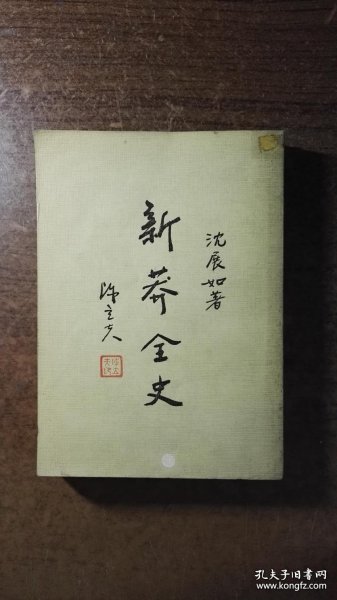 沈展如著
新莽全史
陈立夫
孔夫子旧书网
www.kongfz.com